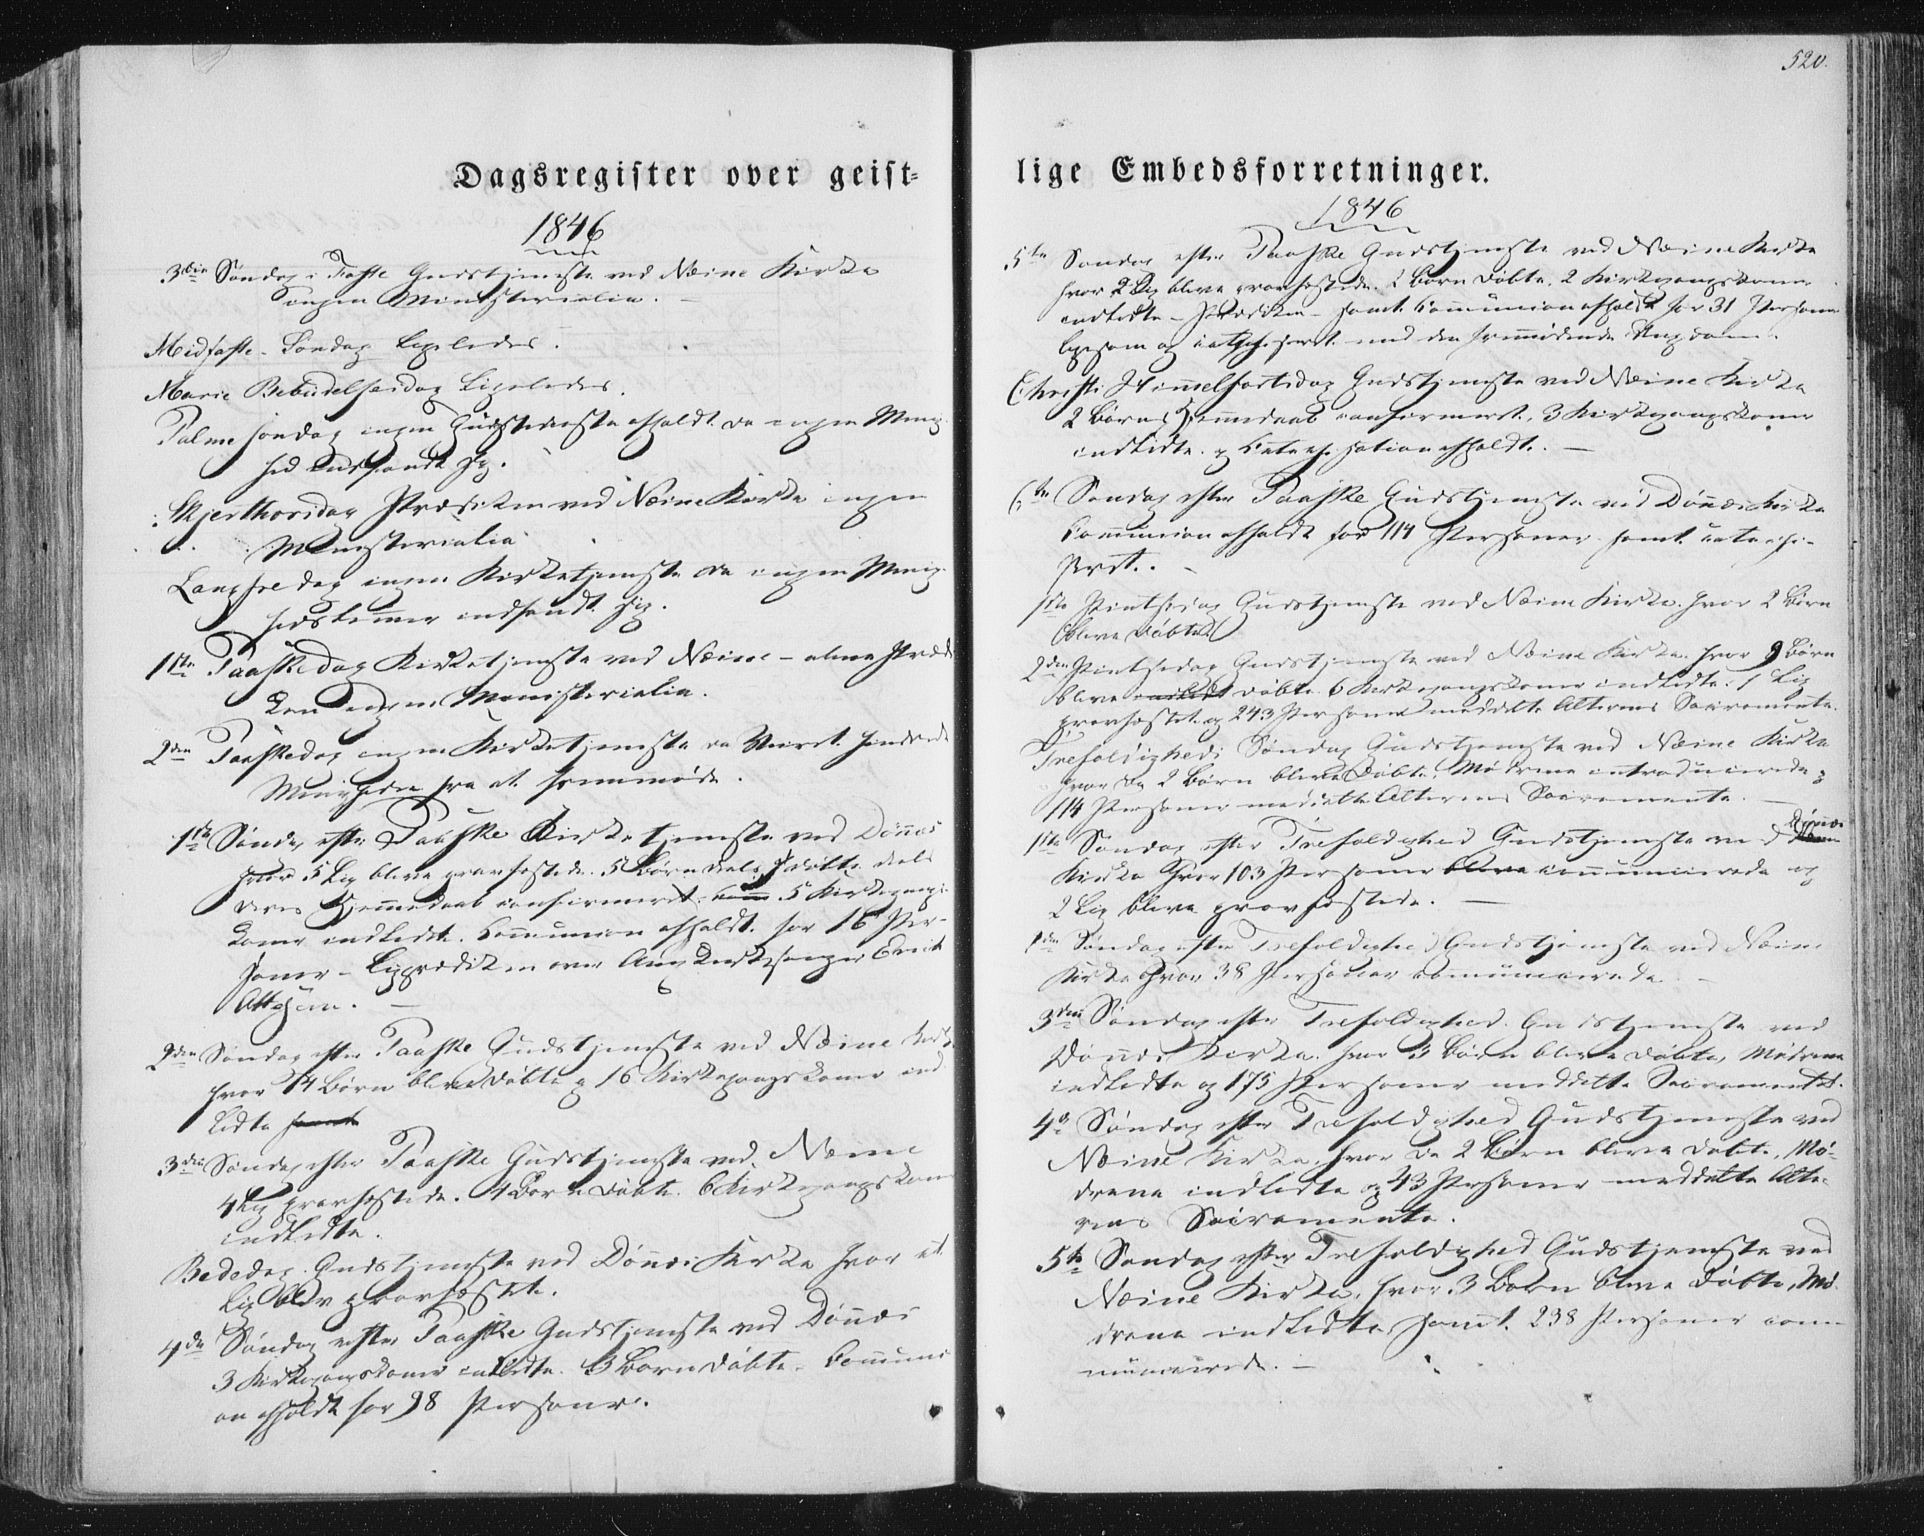 520.
Dagsregister over geist-
1846
3die Søndag i Faste Gudstjeneste ved Næsne Kirke
ingen Ministerialia. —
Midfaste-Søndag Ligeledes.
Marie Bebudelsesdag Ligeledes.
Palmesøndag ingen Gudstjeneste afholdt da ingen Menig-
hed indfandt sig.
Skjerthorsdag Prædiken ved Næsne Kirke ingen
Ministerialia.
Langfredag ingen Kirketjeneste da ingen Menig-
hedslemmer indfandt sig.
1ste Paaskedag Kirketjeneste ved Næsne – alene Prædi-
ken ingen Ministerialia.
2den Paaskedag ingen Kirketjeneste da Veiret hindrede
Menigheden fra at fremmøde.
1ste Søndag efter Paaske Kirketjeneste ved Dønnæs
hvor 5 Lig bleve gravfæstede. 5 Børn deels døbte deels
deres Hjemmedaab confirmeret. 5 Kirkegangs-
koner indledte. Communion afholdt for 16 Per-
soner – Ligprædiken over Kirkesanger
2den Søndag efter Paaske Gudstjeneste ved Næsne Kirke
hvor 14 Børn bleve døbte og 16 Kirkegangskoner ind-
ledte samt
3die Søndag efter Paaske Gudstjeneste ved Næsne
4 Lig gravfæstede. 4 Børn døbte. 6 Kirkegangskoner
indledte.
Bededag. Gudstjeneste ved Dønnæs Kirke hvor et
Lig blev gravfæstet.
4de Søndag efter Paaske Gudstjeneste ved Dønnæs
3 Kirkegangskoner indledte. 3 Børn døbte. Communi-
on afholdt for 98 Personer.
lige Embedsforretninger.
1846
5te Søndag efter Paaske Gudstjeneste ved Næsne Kirke
hvor 2 Lig bleve gravfæstede. 2 Børn døbte, 2 Kirkegangskoner
indledte – Prædiken – samt Communion afholdt for 31 Personer
ligesom og catechiseret med den fremmødende Ungdom.
Christi Himmelfartsdag Gudstjeneste ved Næsne Kirke
2 Børns Hjemmedaab confirmeret, 3 Kirkegangskoner
indledte og Catechisation afholdt. —
6te Søndag efter Paaske Gudstjeneste ved Dønnæs Kirke
Communion afholdt for 114 Personer samt catechi-
seret.
1ste Pintsedag Gudstjeneste ved Næsne Kirke hvor 2 Børn
bleve døbte
2den Pintsedag Gudstjeneste ved Næsne Kirke hvor 9 Børn
bleve døbte 6 Kirkegangskoner indledte. 1 Lig
gravfæstet og 243 Personer meddelte Alterens Sacramente.
Trefoldigheds Søndag Gudstjeneste ved Næsne Kirke
hvor da 2 Børn bleve døbte, Mødrene introducerede og
114 Personer meddelte Alterens Sacramente. —
1ste Søndag efter Trefoldighed Gudstjeneste ved Dønnæs
Kirke hvor 103 Personer bleve communicerede og
2 Lig bleve gravfæstede. —
2den Søndag efter Trefoldighed Gudstjeneste ved Næsne
Kirke hvor 38 Personer communicerede. —
3die Søndag efter Trefoldighed. Gudstjeneste ved
Dønnæs Kirke hvor 3 Børn bleve døbte, Mødrene
indledte og 175 Personer meddelte Sacramentet.
4de Søndag efter Trefoldighed Gudstjeneste ved
Næsne Kirke, hvor da 2 Børn bleve døbte, Mø-
drene indledte og 43 Personer meddelte Alte-
rens Sacramente.
5te Søndag efter Trefoldighed Gudstjeneste ved
Næsne Kirke, hvor 3 Børn bleve døbte, Mø-
drene indledte, samt 238 Personer com-
municerede. —